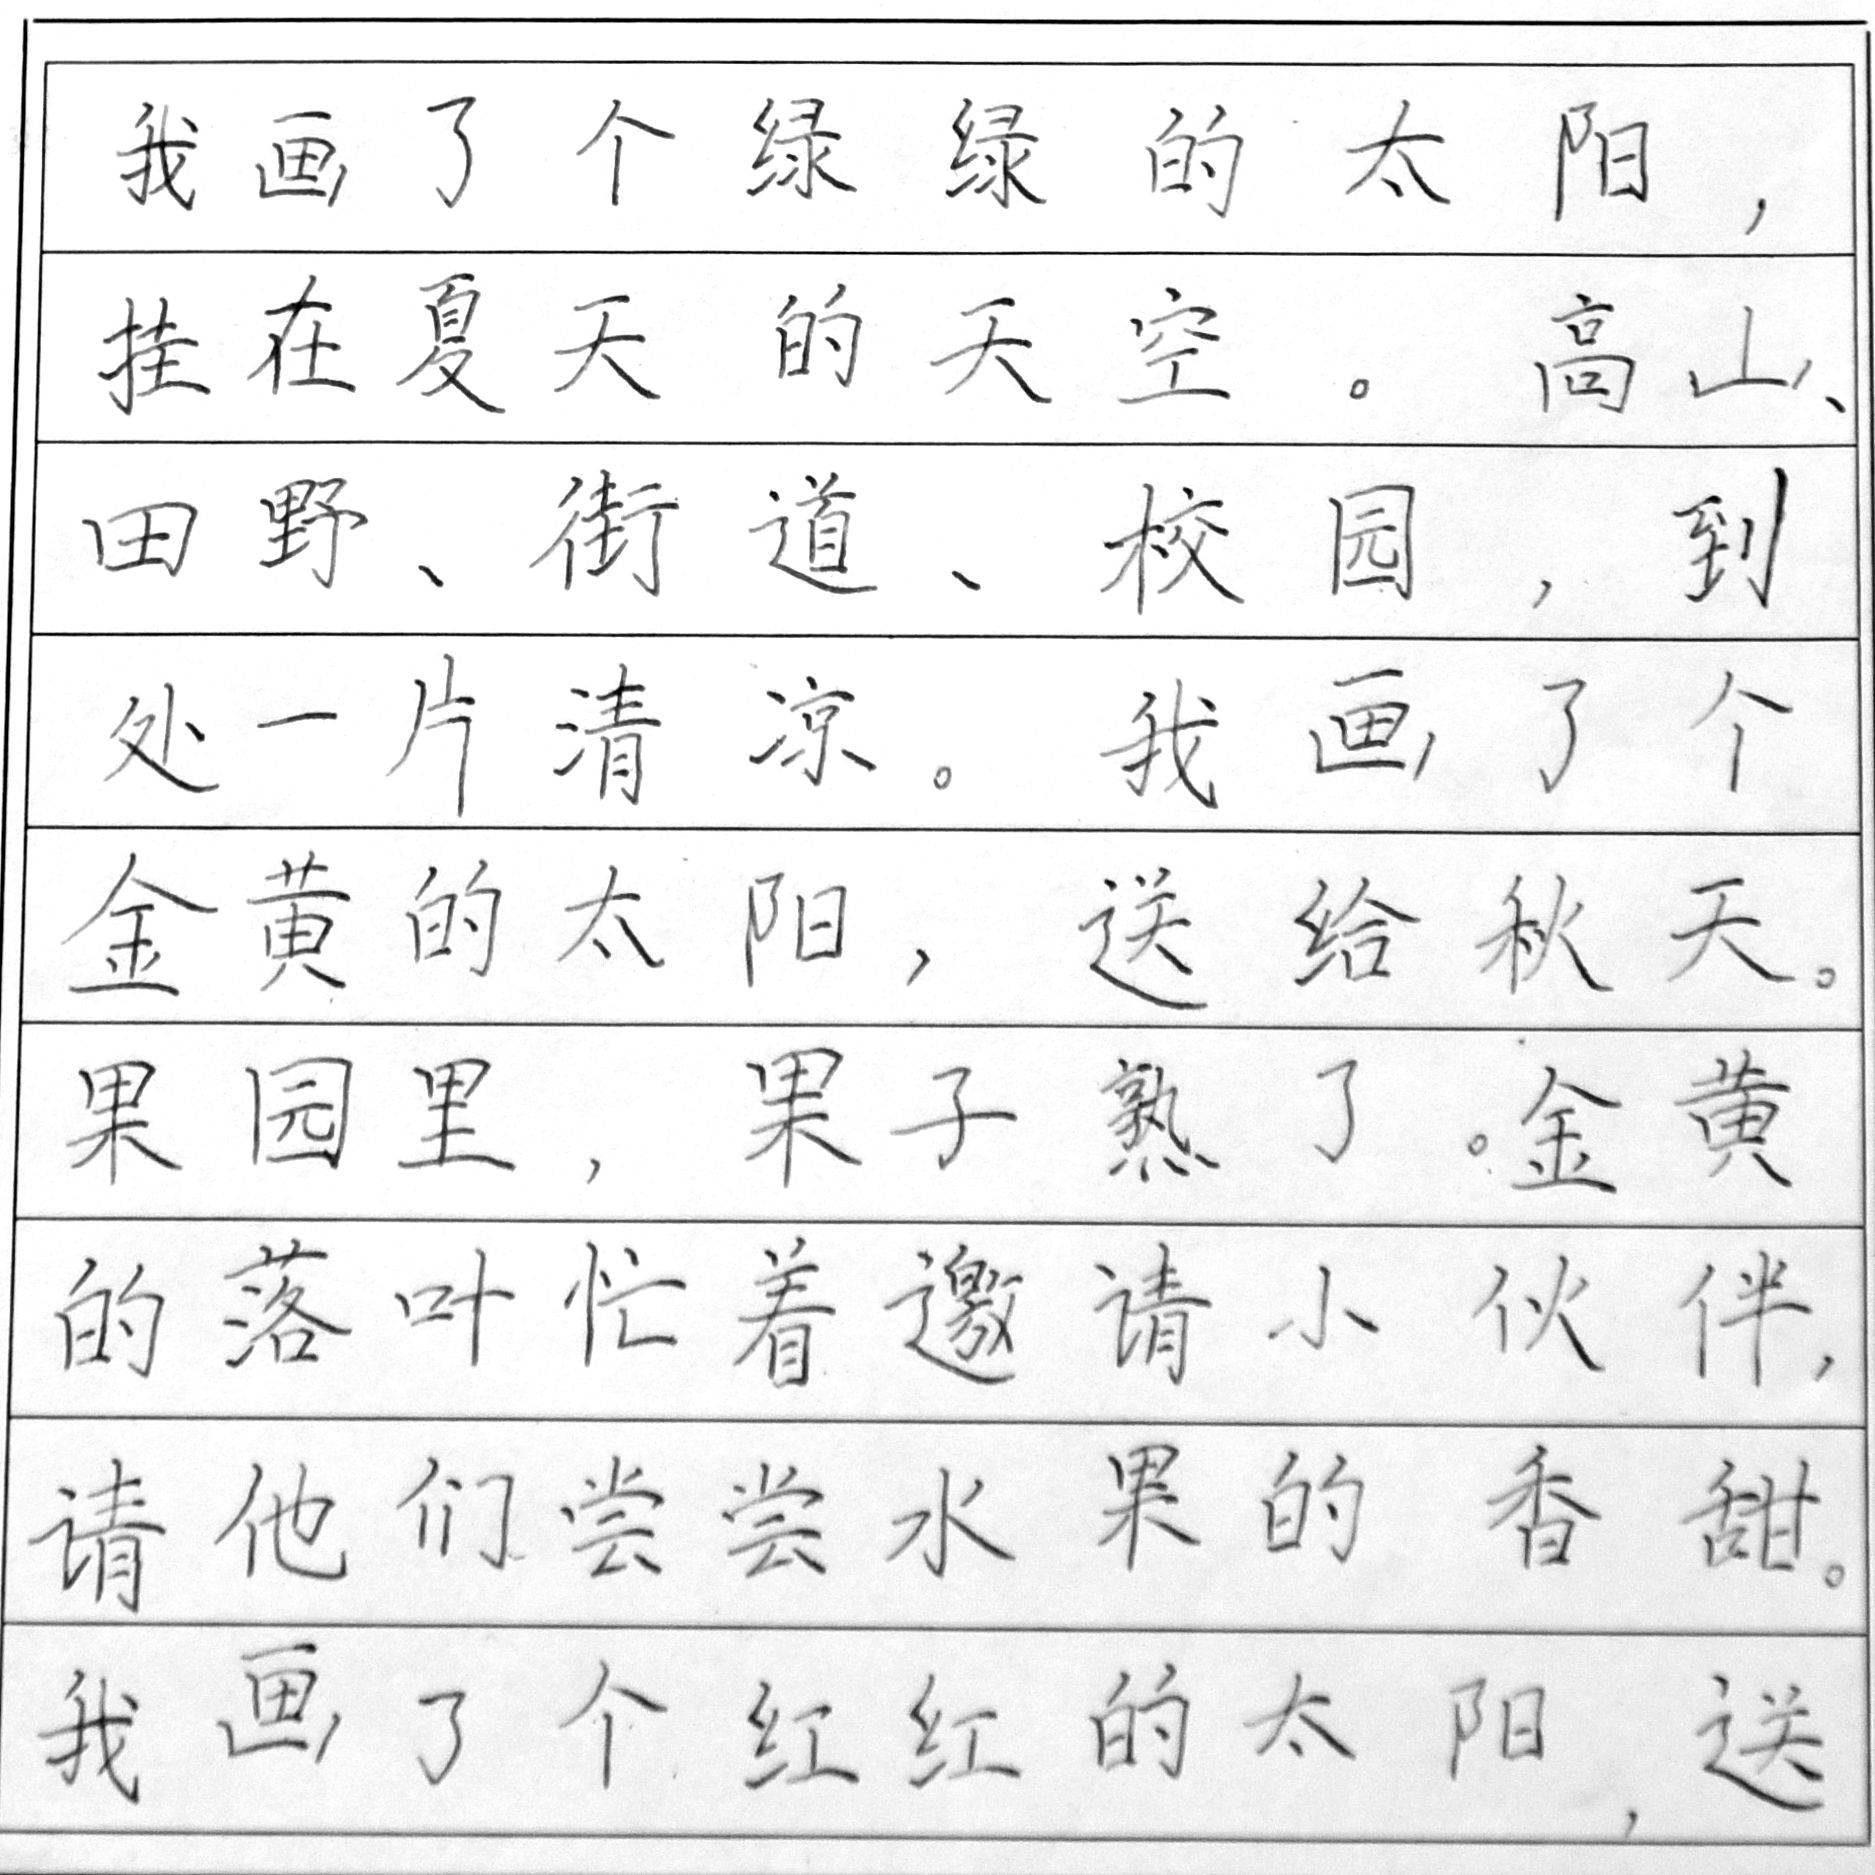 我画了个绿绿的太阳，
挂在夏天的天空。高山、
田野、街道、校园，到
处一片清凉。我画了个
金黄的太阳，送给秋天。
果园里，果子熟了。金黄
的落叶忙着邀请小伙伴，
请他们尝尝水果的香甜。
我画了个红红的太阳，送